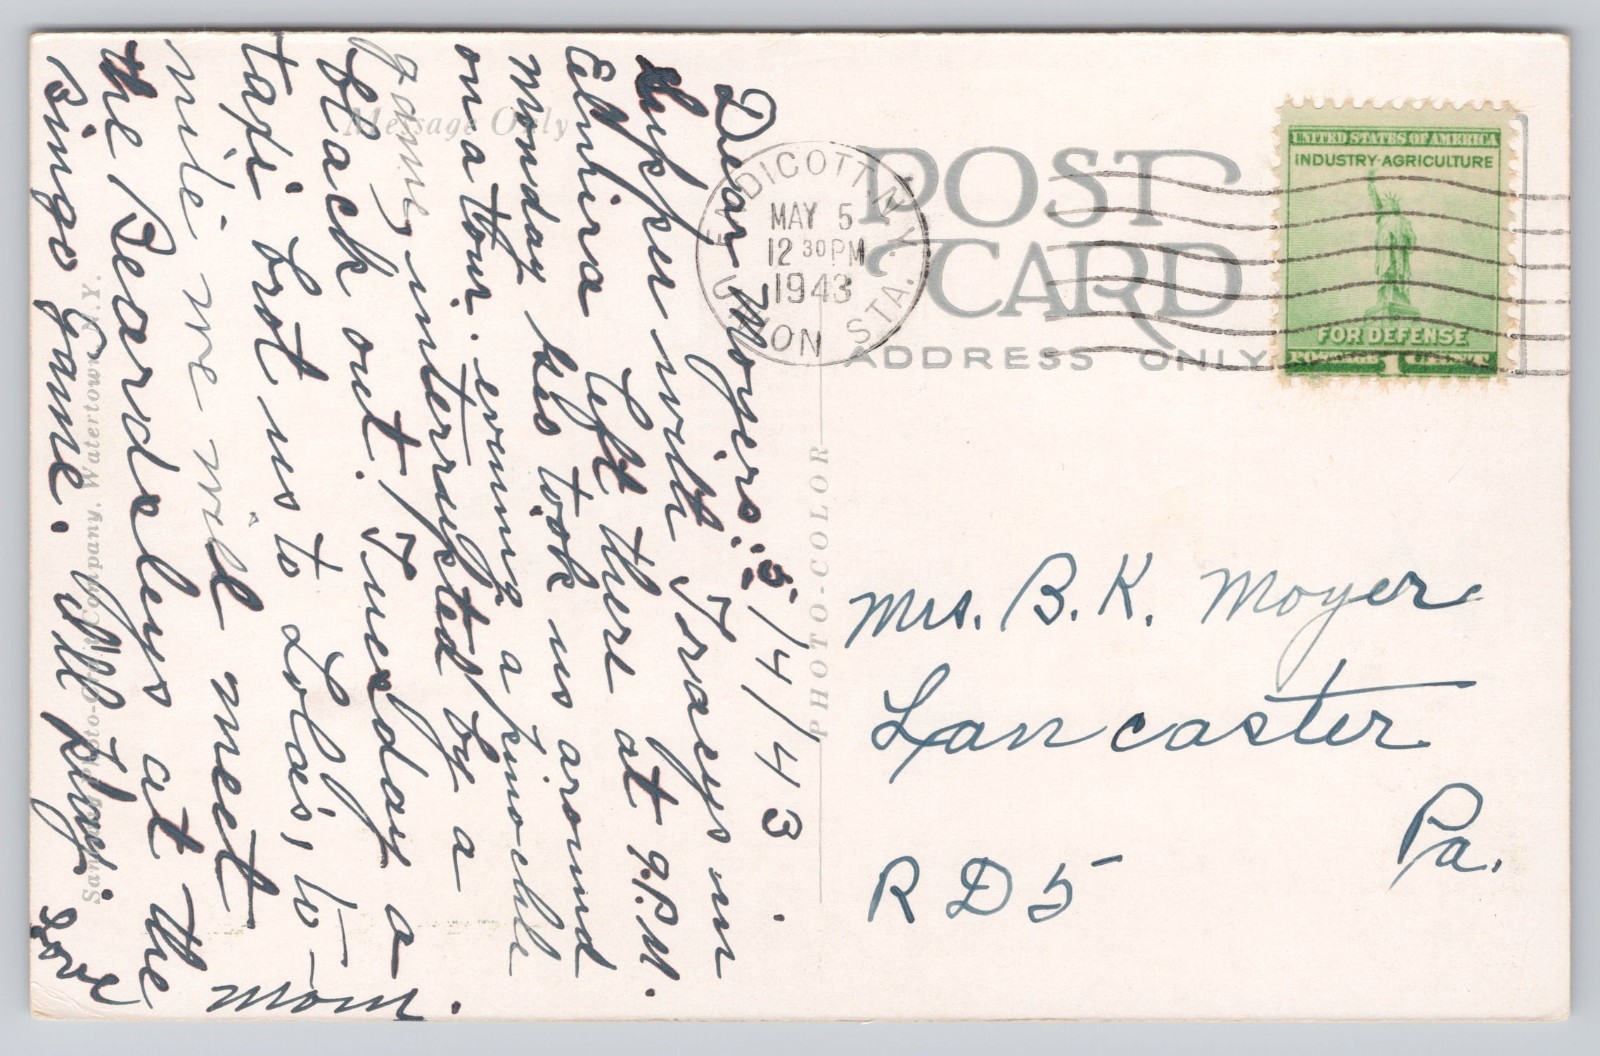 5/4/43
Dear Moyers:
Supper with Traceys in
Elmira Left there at 9.P.M.
Monday Les took us around
on a tour. evening a pinochle
game, interrupted by a
black out. Tuesday a
taxi brot us to Lola's, to-
nite we will meet
the Beardsleys at the
Bingo Game. Will play.
Love
Mom.
Message Only
Santway Photo-Craft Company, Watertown, N.Y.
PHOTO-COLOR
ENDICOTT, N.Y.
MAY 5
12 30 PM
1943
UNION STA.
POST
CARD
ADDRESS ONLY
UNITED STATES OF AMERICA
INDUSTRY·AGRICULTURE
FOR DEFENSE
POSTAGE 1 CENT
Mrs. B. K. Moyer
Lancaster
Pa.
R D 5